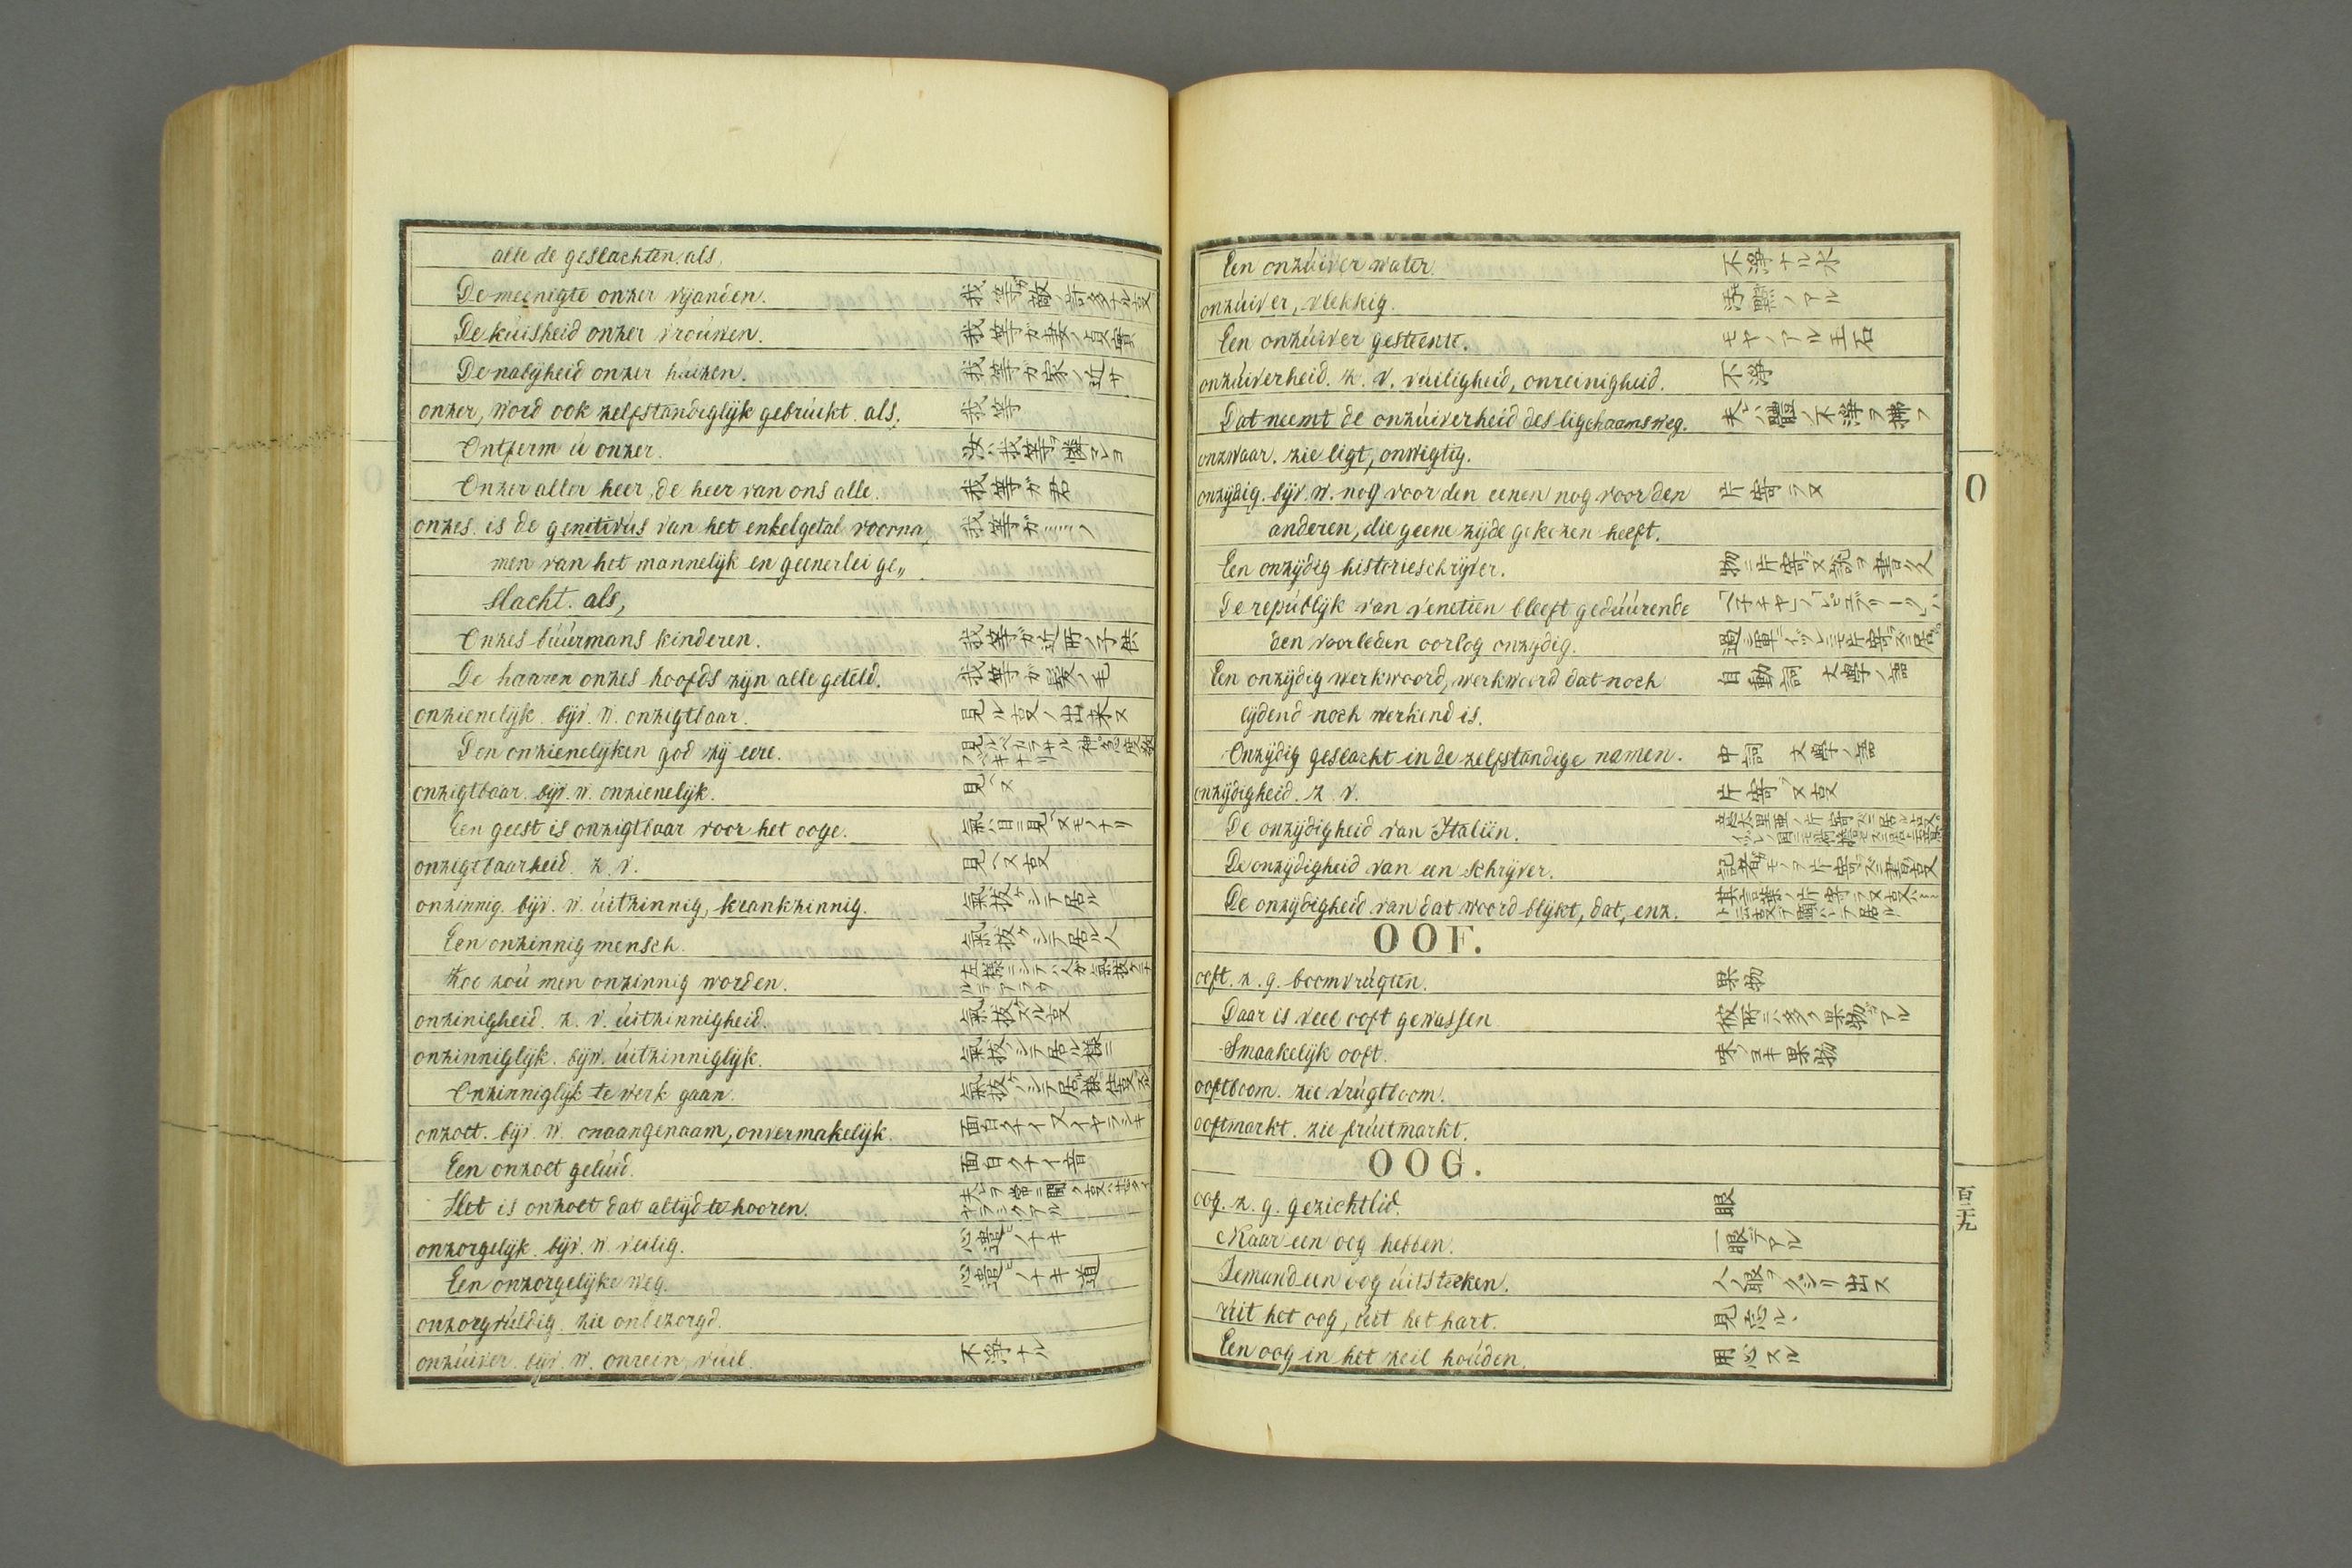 alle de geslachten. als,
De meenigte onzer vyanden. 我等ガ敵ノ許多ナル叓
De kúisheid onzer vroúwen. 我等ガ妻ノ貞實
De nabyheid onzer húizen. 我等ガ家ノ近サ
onzer, word ook zelfstandiglyk gebrúikt. als, 我等
Ontferm ú onzer.
Onzer aller heer, de heer van ons alle. 我等ガ君
onzes. is de genitivús van het enkelgetal voorna 我等ガ……ノ
men van het mannelyk en geenerlei ge„
slacht. als,
Onzes búúrmans kinderen. 我等ガ近所ノ子供
De haaren onzes hoofds zyn alle geteld. 我等ガ髪ノ毛
onzienelyk. byv. w. onzigtbaar. 見ル叓ノ出来ヌ
Den onzienelyken god zy eere.
onzigtbaar. byv. w. onzienelyk. 見ヘヌ
Een geest is onzigtbaar voor het ooge. 氣ハ目ニ見ヘヌモノナリ
onzigtbaarheid. z. v. 見ヘヌ叓
onzinnig. byv. w. úitzinnig, krankzinnig. 氣抜ケシテ居ル
Een onzinnig mensch. 氣抜ケシテ居ル人
Hoe zoú men onzinnig worden.
onzinigheid. z. v. úitzinnigheid. 氣抜スル叓
onzinniglyk. byw. úitzinniglyk. 氣抜ケシテ居ル様ニ
Onzinniglyk te werk gaan.
onzoet. byv. w. onaangenaam, onvermakelyk. 面白クナイ又イヤラシキ
Een onzoet gelúid. 面白クナイ音
Het is onzoet dat altyd te hooren.
onzorgelyk. byv. w. veilig. 心遣ヒノナキ
Een onzorgelyke weg. 心遣ヒノナキ道
onzorgvúldig. zie onbezorgd.
onzúiver. byv. w. onrein, vúil. 不浄ナル
Een onzúiver water. 不浄ナル水
onzúiver, vlekkig.
Een onzúiver gesteente. モヤノアル玉石
onzúiverheid. z. v. vúiligheid, onreinigheid. 不浄
Dat neemt de onzúiverheid des ligchaams weg. 夫レハ體ノ不浄ヲ拂フ
onzwaar. zie ligt, onwigtig.
onzydig. byv. w. nog voor den eenen nog voor den 片寄ラヌ
anderen, die geene zyde gekozen heeft.
Een onzydig historieschryver.
De repúblyk van Venetien bleeft gedúúrende
den voorleden oorlog onzydig.
Een onzydig werkwoord, werkwoord dat noch 自動詞 文學ノ語
lydend noch werkend is.
Onzydig geslacht in de zelfstandige namen. 中詞 文學ノ語
onzydigheid. z. v. 片寄ラヌ叓
De onzydigheid van Italiën.
De onzydigheid van een schryver.
De onzydigheid van dat woord blykt, dat, enz.
OOF.
ooft. z. g. boomvrúgten. 果物
Daar is veel ooft gewassen. 彼所ニハ多ク果物ガアル
Smaakelyk ooft. 味ノヨキ果物
ooftboom. zie vrúgtboom.
ooftmarkt. zie frúitmarkt.
OOG.
oog. z. g. gezichtlid. 眼
Maar een oog hebben. 一眼デアル
Iemand een oog úitsteeken. 人ノ眼ヲクジリ出ス
Uit het oog, úit het hart. 見忘ル
Een oog in het zeil hoúden. 用心スル
O
百三十九